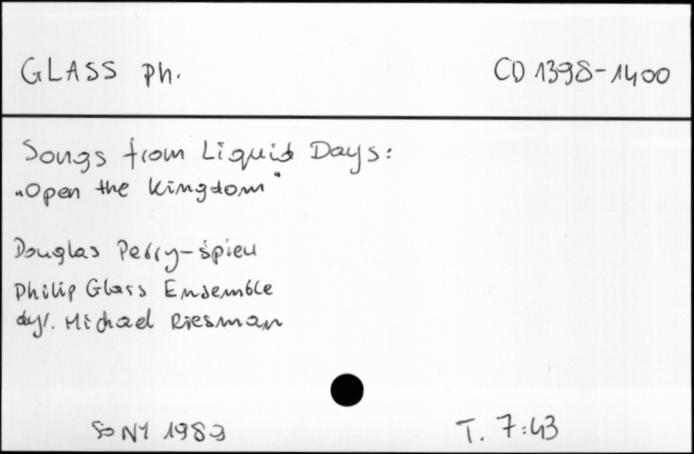 GLASS Ph. CD 1398-1400
Songs from Liquid Days:
„Open the Kingdom"
Douglas Perry-śpiew
Philip Glass Ensemble
dyr. Michael Riesman
SONY 1989 T. 7:43